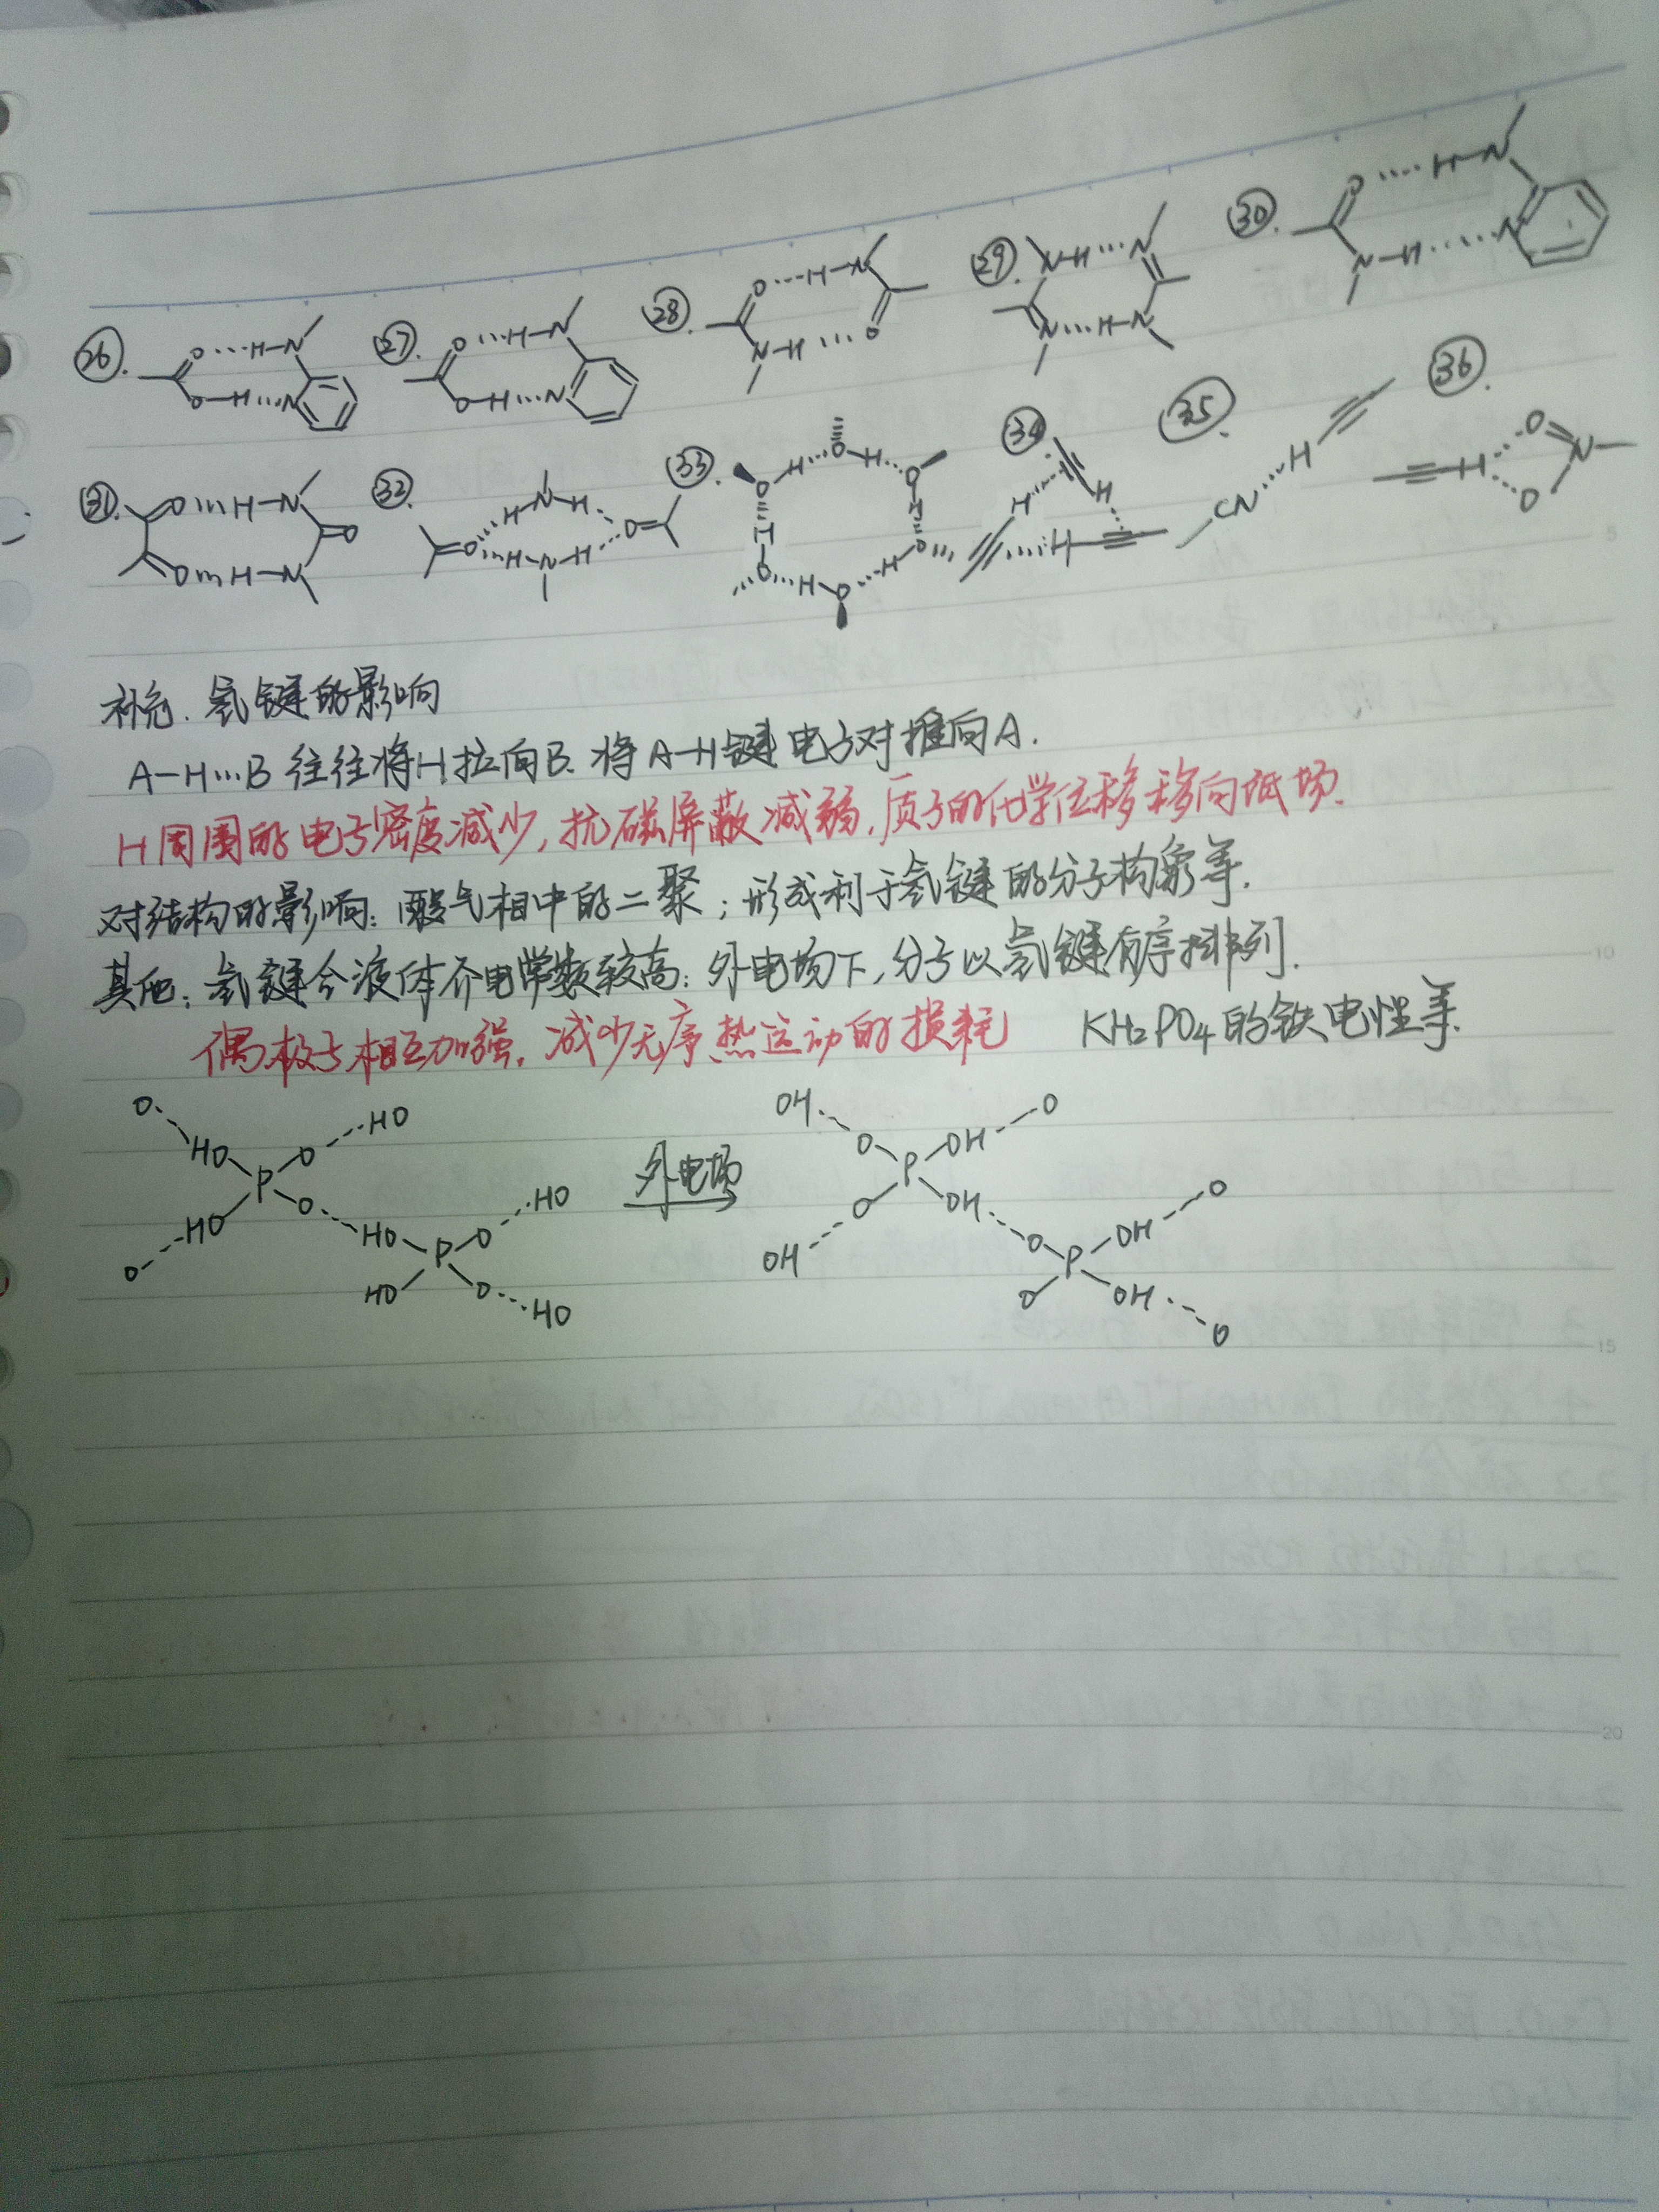 ㉖. O···H-N O-H···N
㉗. O···H-N O-H···N
㉘. O···H-N N-H···O
㉙. N-H···N N···H-N
㉚. O···H-N N-H···N
㉛. O···H-N O O···H-N
㉜. O H-N-H O H-N-H
㉝. O H O H O H O H O H O H
㉞. H H H
㉟. CN···H
㊱. H O N O
补充. 氢键的影响
A-H···B 往往将H拉向B. 将A-H键电子对推向A.
H周围的电子密度减少, 抗磁屏蔽减弱, 质子的化学位移移向低场.
对结构的影响: 酸气相中的二聚; 形成利于氢键的分子构象等.
其他: 氢键令液体介电常数较高: 外电场下, 分子以氢键有序排列.
偶极子相互加强, 减少无序热运动的损耗 KH₂PO₄的铁电性等.
O HO OH O
HO O 外电场 O OH
P P
HO O HO O OH OH O
O HO P O OH O P OH
HO O HO O OH O